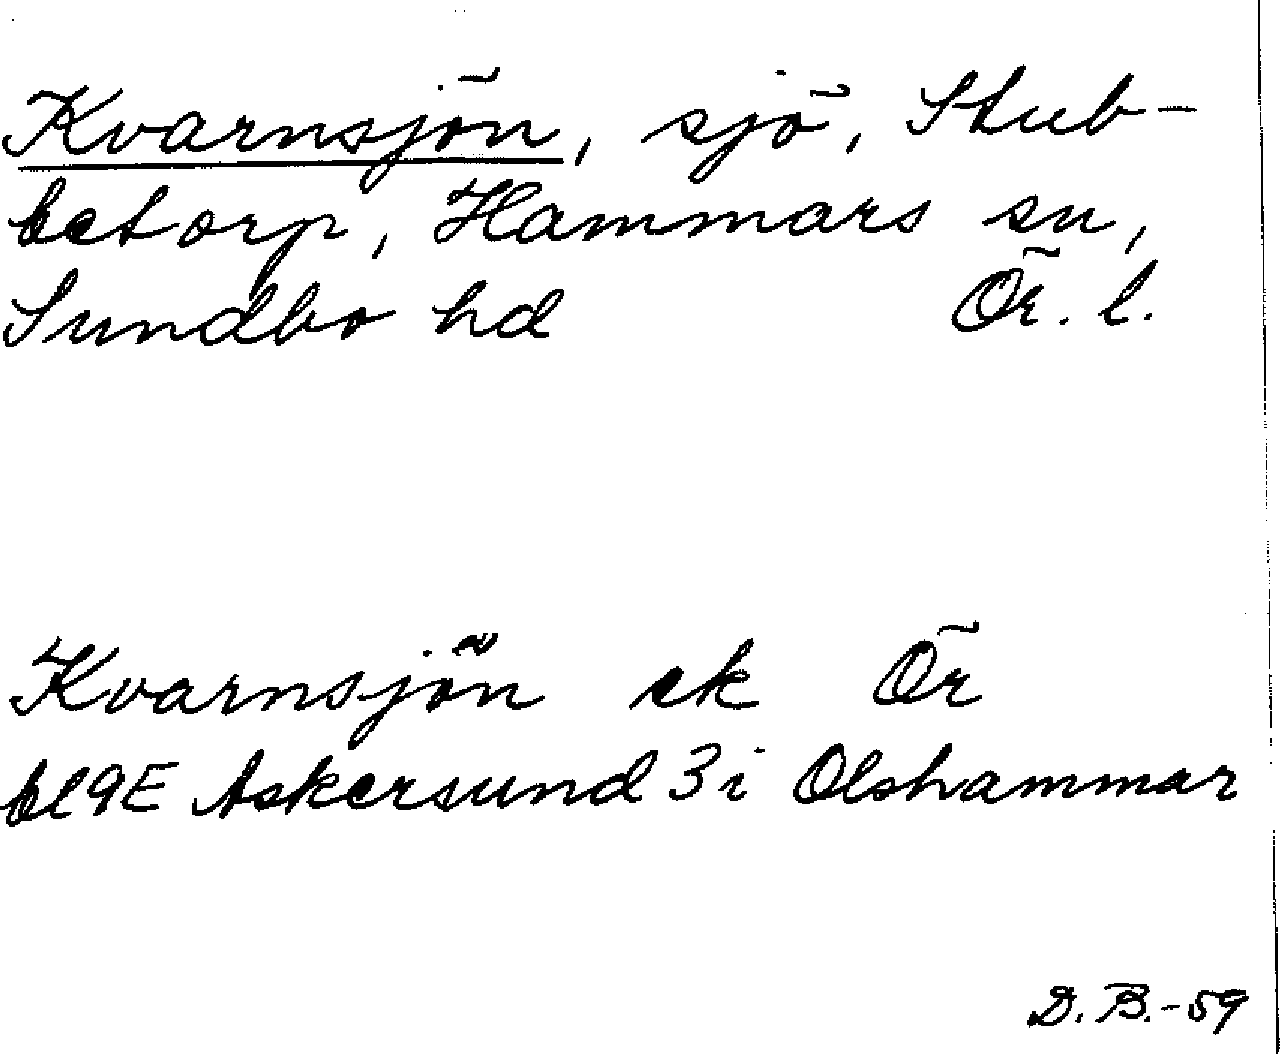 Kvarnsjön, sjö, Stub-
betorp, Hammars sn,
Sundbo hd Ör. l.
Kvarnsjön ek Ör
bl 9E Askersund 3i Olshammar
D. B. -59